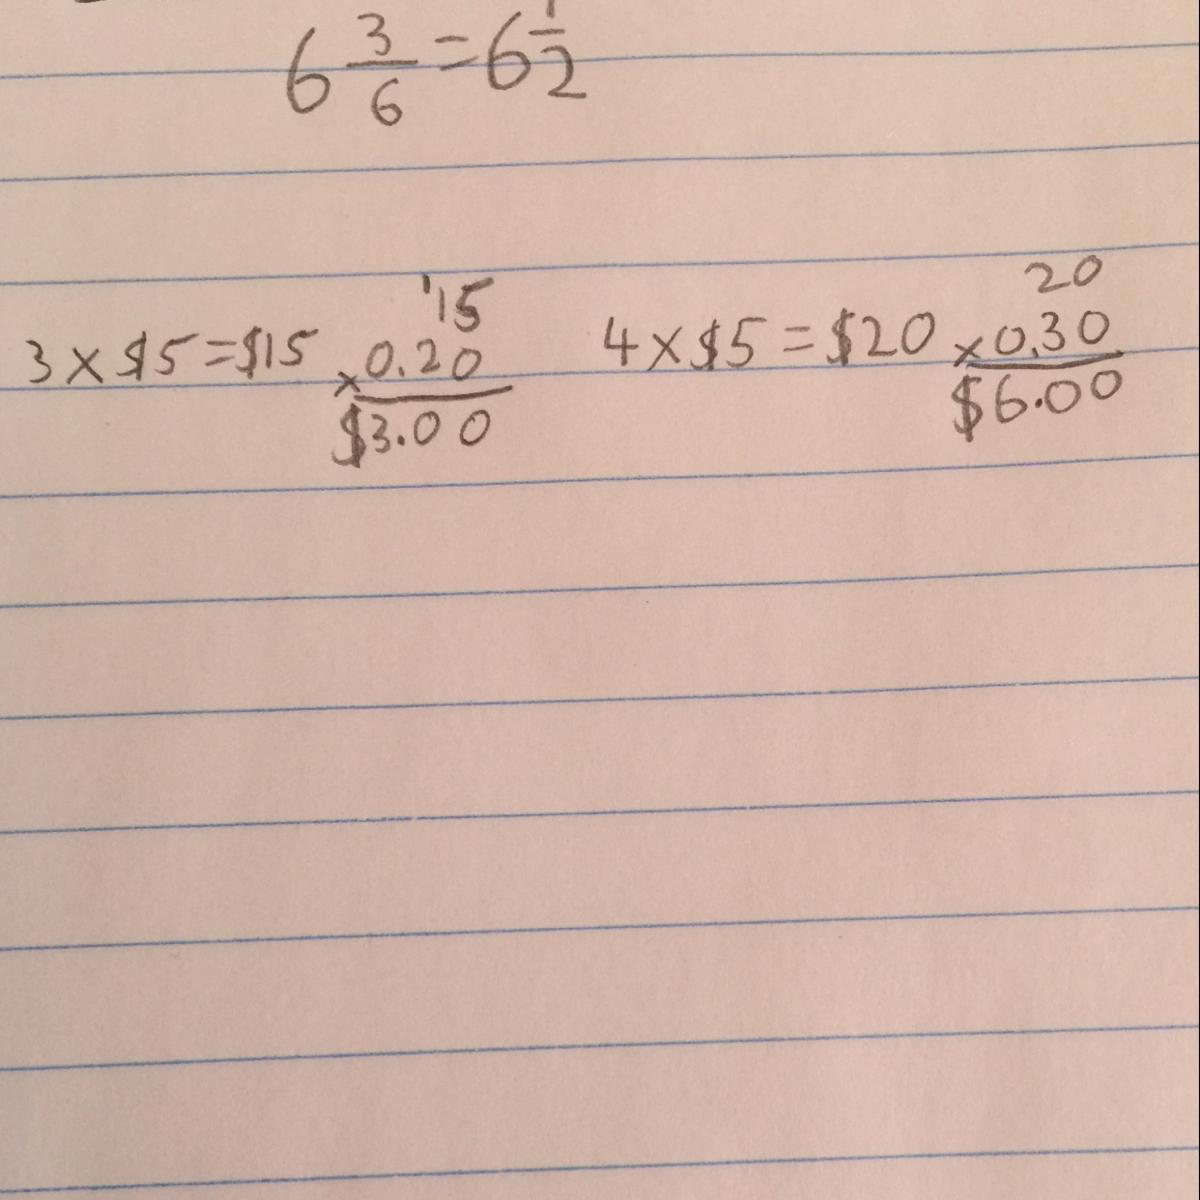 6 3/6 = 6 1/2
3 x $5 = $15
'15
x 0.20
$3.00
4 x $5 = $20
20
x 0.30
$6.00